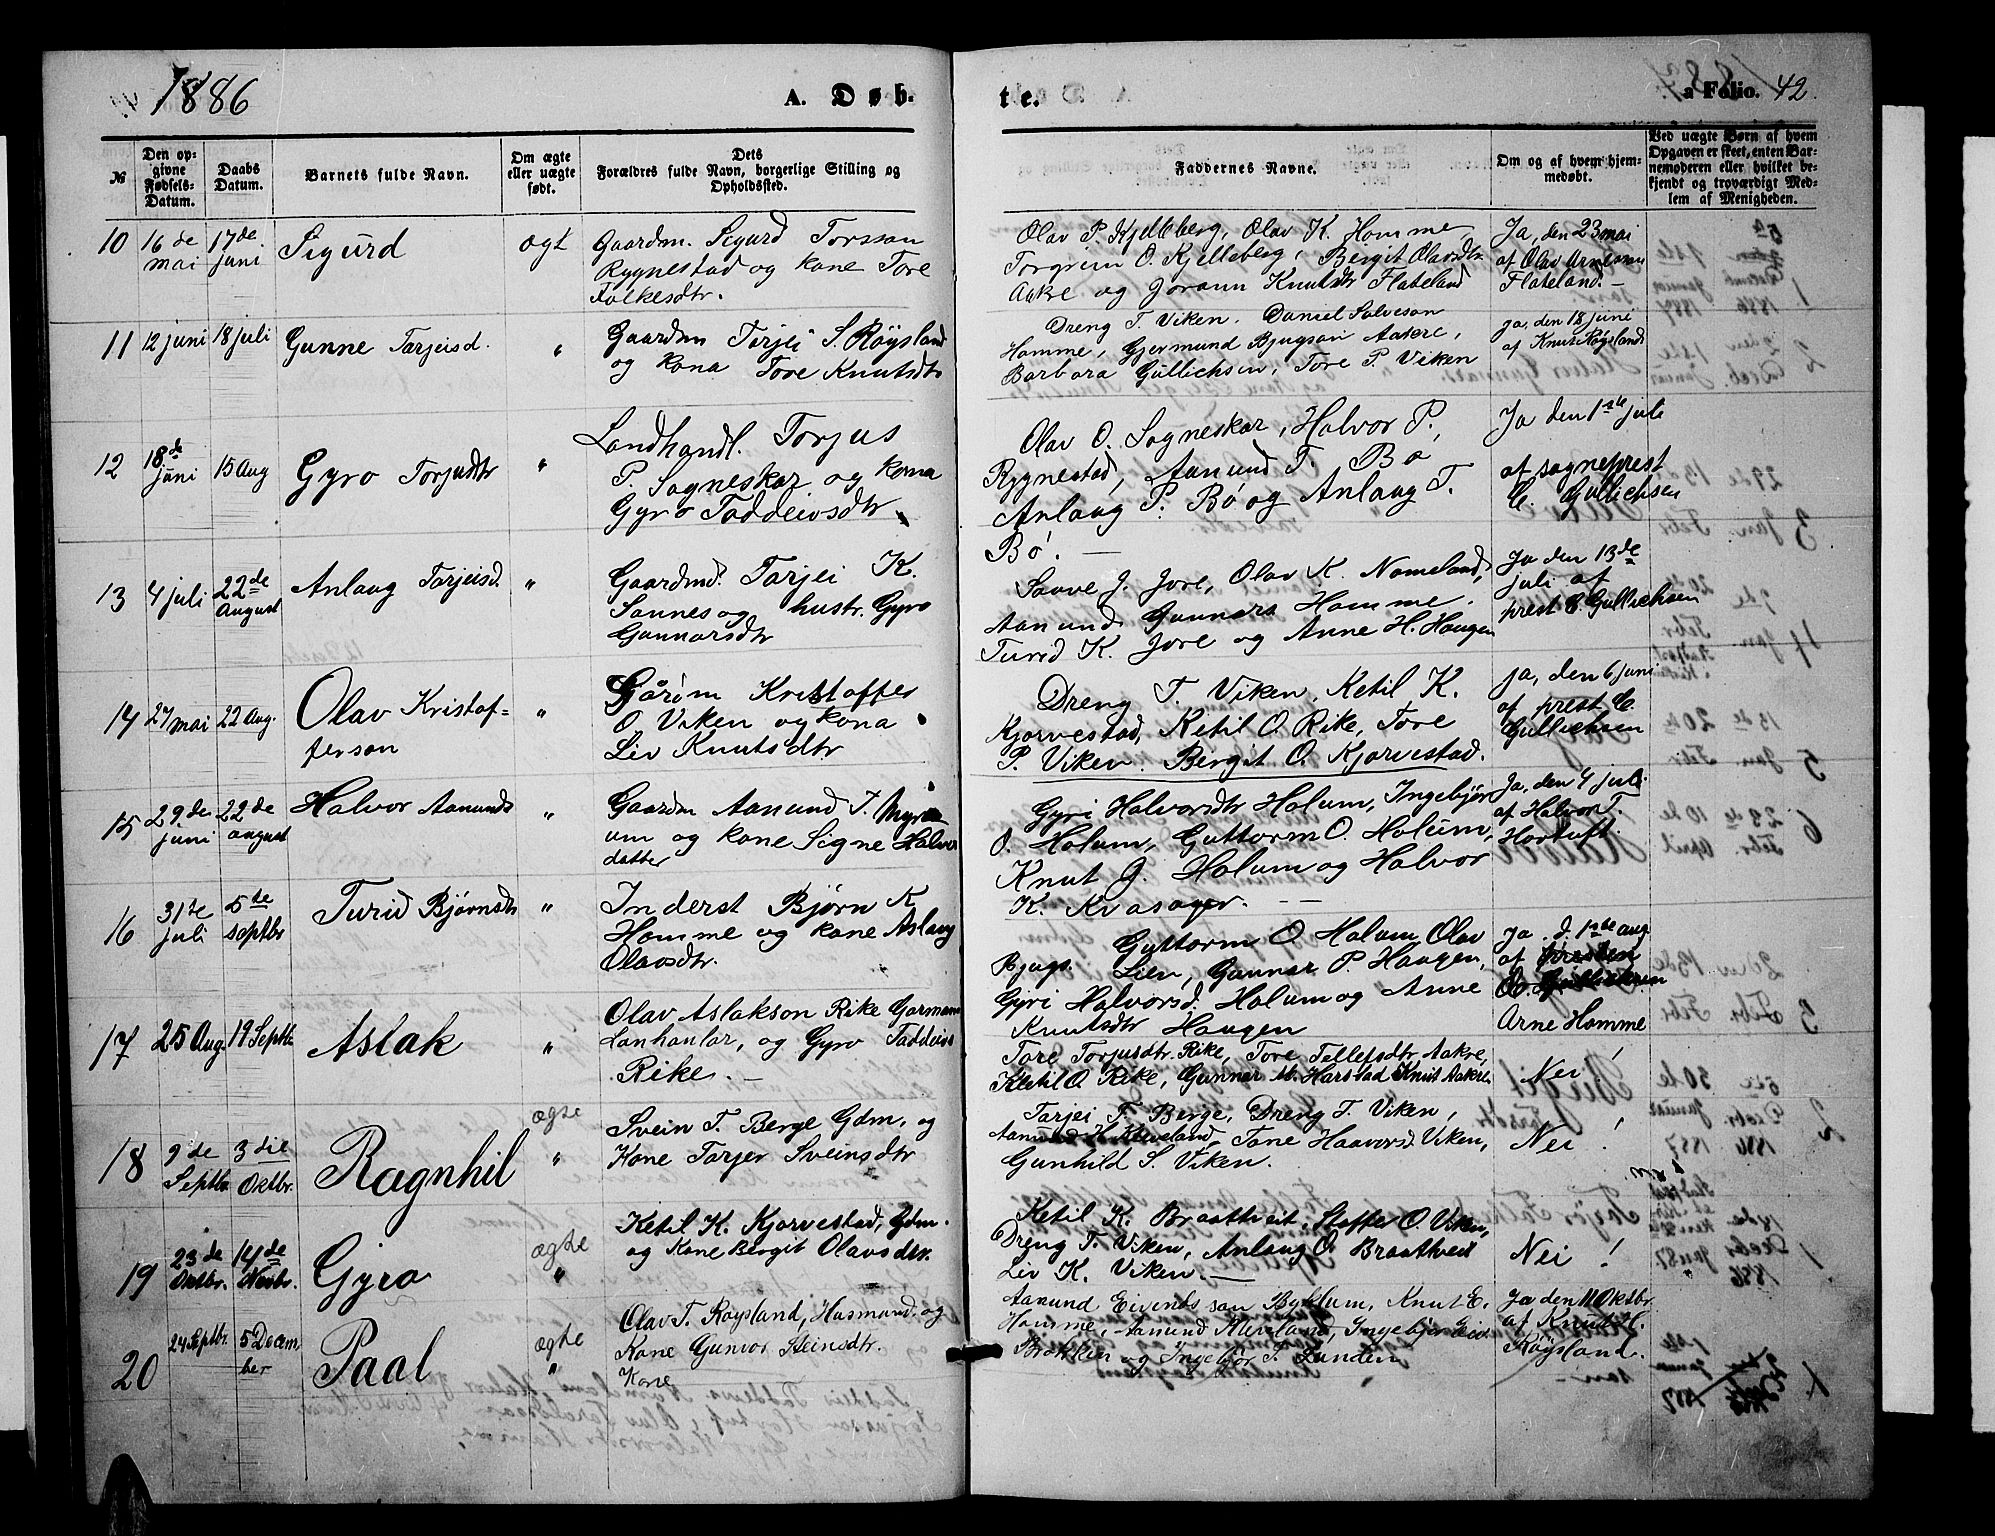 1886
A. Døb-
te.
a Folio. 42.
№
Den op-
givne
Fødsels-
Datum.
Daabs
Datum.
Barnets fulde Navn.
Om ægte
eller uægte
født.
Dets
Forældres fulde Navn, borgerlige Stilling og
Opholdssted.
Faddernes Navne.
Om og af hvem hjem-
medøbt.
Ved uægte Børn af hvem
Opgaven er skeet, enten Bar-
nemoderen eller hvilket be-
kjendt og troværdigt Med-
lem af Menigheden.
10
16 de
mai
17 de
juni
Sigurd
ægt
Gaardm. Sigurd Torsson
Rygnestad og kone Tore
Folkesdtr.
Olav P. Kjelleberg, Olav K. Homme
Torgrim O. Kjelleberg, Bergit Olavsdtr
Aakre og Jorann Knutsdtr Flateland
Ja, den 23 mai
af Olav Arneson
Flateland. -
11
12 juni
18 juli
Gunne Tarjeisd.
"
Gaardm Tarjei S. Røysland
og kona Tore Knutsdtr
Dreng T. Viken. Daniel Salveson
Homme, Gjermund Bjugson Aakre,
Barbara Gullichsen, Tore P. Viken
Ja, den 18 juni
af Knut Røysland
12
18 de
juni
15 Aug
Gyro Torjusdtr
"
Landhandl. Torjus
P. Sogneskar og kona
Gyro Taddeivsdtr
Olav O. Sogneskar, Halvor P.
Rygnestad, Aanund T. Bø
Anlaug P. Bø og Anlaug T.
Bø. -
Ja den 1ste juli
af sogneprest
C. Gullichsen
13
4 juli
22 de
August
Anlaug Tarjeisd.
"
Gaardmd. Tarjei K.
Sannes og hustr. Gyro
Gunnarsdtr
Saave J. Jore, Olav K. Nomeland,
Aanund Gunnars Homme.
Turid K. Jore og Anne H. Haugen
Ja den 13 de
juli af
prest C Gullichsen
14
27 mai
22 Aug.
Olav Kristof-
ferson
"
Kristoffer
O. Viken og kona
Liv Knutsdtr
Dreng T. Viken, Ketil K.
Kjørvestad, Ketil O Rike, Tore
P. Viken. Bergit O. Kjørvestad.
Ja, den 6 juni
af prest C.
Gullichsen
15
29 de
juni
22 de
august
Halvor Aanunds
"
Gaardm Aanund T. Myra
um og kone Signe Halvor
datter
Gyri Halvorsdtr Holum, Ingebjør
O. Holum, Guttorm O. Holum,
Knut J. Holum og Halvor
K. Kvasager. -
Ja, den 4 juli
af Halvor T.
Hortuft.
16
31 te
juli
5 te
septbr
Turid Bjørnsdtr
"
Inderst Bjørn K
Homme og kone Aslaug
Olavsdtr.
Guttorm O Holum Olav
Bjugs. Lien, Gunnar P. Haugen,
Gyri Halvorsd. Holum og Anne
Knutsdtr Haugen
Ja. d. 1ste aug
af
Arne Homme
17
25 Aug.
19 Septbr
Aslak
"
Olav Aslakson Rike
Lanhanlar, og Gyro Taddeivs
Rike. -
Tore Torjusdtr. Rike, Tore Tellefsdtr Aakre,
Ketil O. Rike, Gunnar M. Harstad Knut Aakre
Nei !
18
9 de
Septbr
3 die
Oktbr.
Ragnhil
ægte
"
Svein T. Berge Gdm, og
Kone Tarjer Sveinsdtr
Tarjei F. Berge, Dreng T. Viken,
Aanund H. Kleveland, Tone Haavorsd Viken,
Gunhild S. Viken.
Nei !
19
23 de
Oktbr.
14 de
Novbr.
Gyro
ægte
"
Ketil K. Kjørvestad, Gdm.
og Kone Bergit Olavsdtr.
Ketil K. Braattveit, Stoffer O. Viken,
Dreng T. Viken, Anlaug O. Braatveit
Liv K. Viken. -
Nei !
20
24 Septbr.
5 Decem
ber
Paal
ægte
"
Olav T. Røysland, Husmand. og
Kone Gunvor Steinsdtr.
Kone
Aanund Eivends son Byklum, Knut E.
Homme, Aanund Kleveland, Ingebjør Eiv.
Brokken og Ingebjør T. Lunden
Ja den 11 Oktbr.
af Knut H.
Røysland.